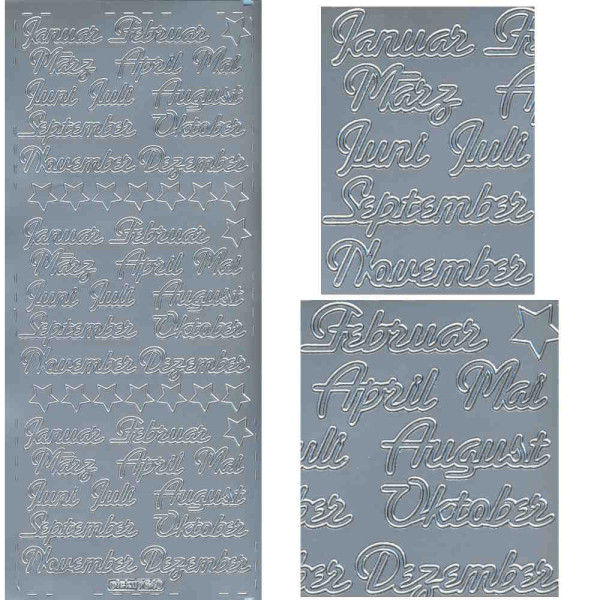 Januar Februar
März April Mai
Juni Juli August
September Oktober
November Dezember
Januar Februar
März April Mai
Juni Juli August
September Oktober
November Dezember
Januar Februar
März April Mai
Juni Juli August
September Oktober
November Dezember
Januar Fe
März A
Juni Juli
September
November
Februar
April Mai
uli August
er Oktober
er Dezember